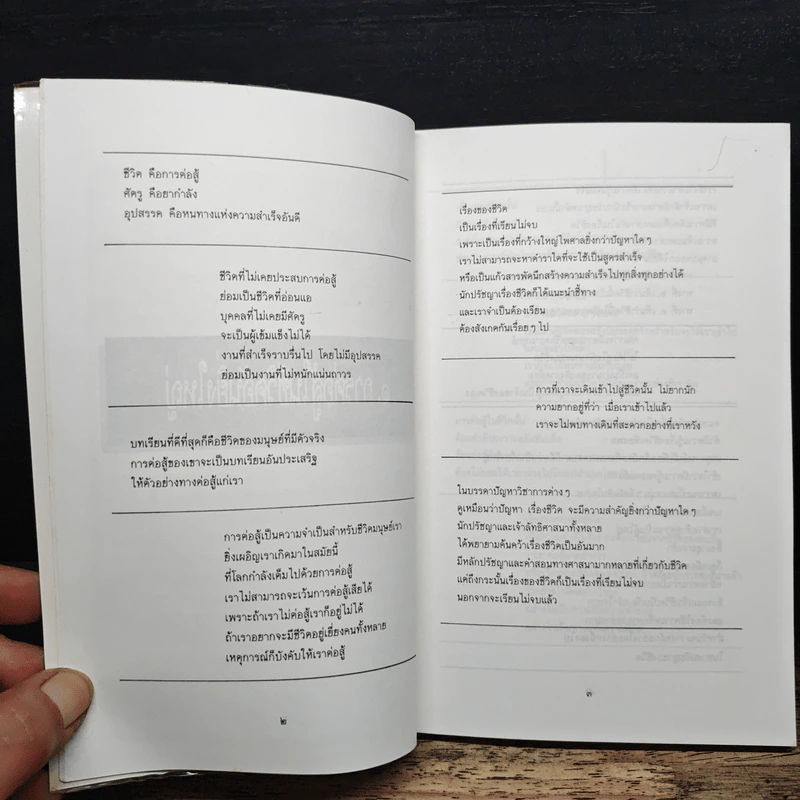 ชีวิต คือการต่อสู้
ศัตรู คือยากำลัง
อุปสรรค คือหนทางแห่งความสำเร็จอันดี
ชีวิตที่ไม่เคยประสบการต่อสู้
ย่อมเป็นชีวิตที่อ่อนแอ
บุคคลที่ไม่เคยมีศัตรู
จะเป็นผู้เข้มแข็งไม่ได้
งานที่สำเร็จราบรื่นไป โดยไม่มีอุปสรรค
ย่อมเป็นงานที่ไม่หนักแน่นถาวร
บทเรียนที่ดีที่สุดก็คือชีวิตของมนุษย์ที่มีตัวจริง
การต่อสู้ของเขาจะเป็นบทเรียนอันประเสริฐ
ให้ตัวอย่างทางต่อสู้แก่เรา
การต่อสู้เป็นความจำเป็นสำหรับชีวิตมนุษย์เรา
ยิ่งเผอิญเราเกิดมาในสมัยนี้
ที่โลกกำลังเต็มไปด้วยการต่อสู้
เราไม่สามารถจะเว้นการต่อสู้เสียได้
เพราะถ้าเราไม่ต่อสู้เราก็อยู่ไม่ได้
ถ้าเราอยากจะมีชีวิตอยู่เยี่ยงคนทั้งหลาย
เหตุการณ์ก็บังคับให้เราต่อสู้
๒
เรื่องของชีวิต
เป็นเรื่องที่เรียนไม่จบ
เพราะเป็นเรื่องที่กว้างใหญ่ไพศาลยิ่งกว่าปัญหาใดๆ
เราไม่สามารถจะหาตำราใดที่จะใช้เป็นสูตรสำเร็จ
หรือเป็นแก้วสารพัดนึกสร้างความสำเร็จไปทุกสิ่งทุกอย่างได้
นักปรัชญาเรื่องชีวิตก็ได้แนะนำชี้ทาง
และเราจำเป็นต้องเรียน
ต้องสังเกตกันเรื่อยๆ ไป
การที่เราจะเดินเข้าไปสู่ชีวิตนั้น ไม่ยากนัก
ความยากอยู่ที่ว่า เมื่อเราเข้าไปแล้ว
เราจะไม่พบทางเดินที่สะดวกอย่างที่เราหวัง
ในบรรดาปัญหาวิชาการต่างๆ
ดูเหมือนว่าปัญหา เรื่องชีวิต จะมีความสำคัญยิ่งกว่าปัญหาใดๆ
นักปรัชญาและเจ้าลัทธิศาสนาทั้งหลาย
ได้พยายามค้นคว้าเรื่องชีวิตเป็นอันมาก
มีหลักปรัชญาและคำสอนทางศาสนามากหลายที่เกี่ยวกับชีวิต
แต่ถึงกระนั้นเรื่องของชีวิตก็เป็นเรื่องที่เรียนไม่จบ
นอกจากจะเรียนไม่จบแล้ว
๓